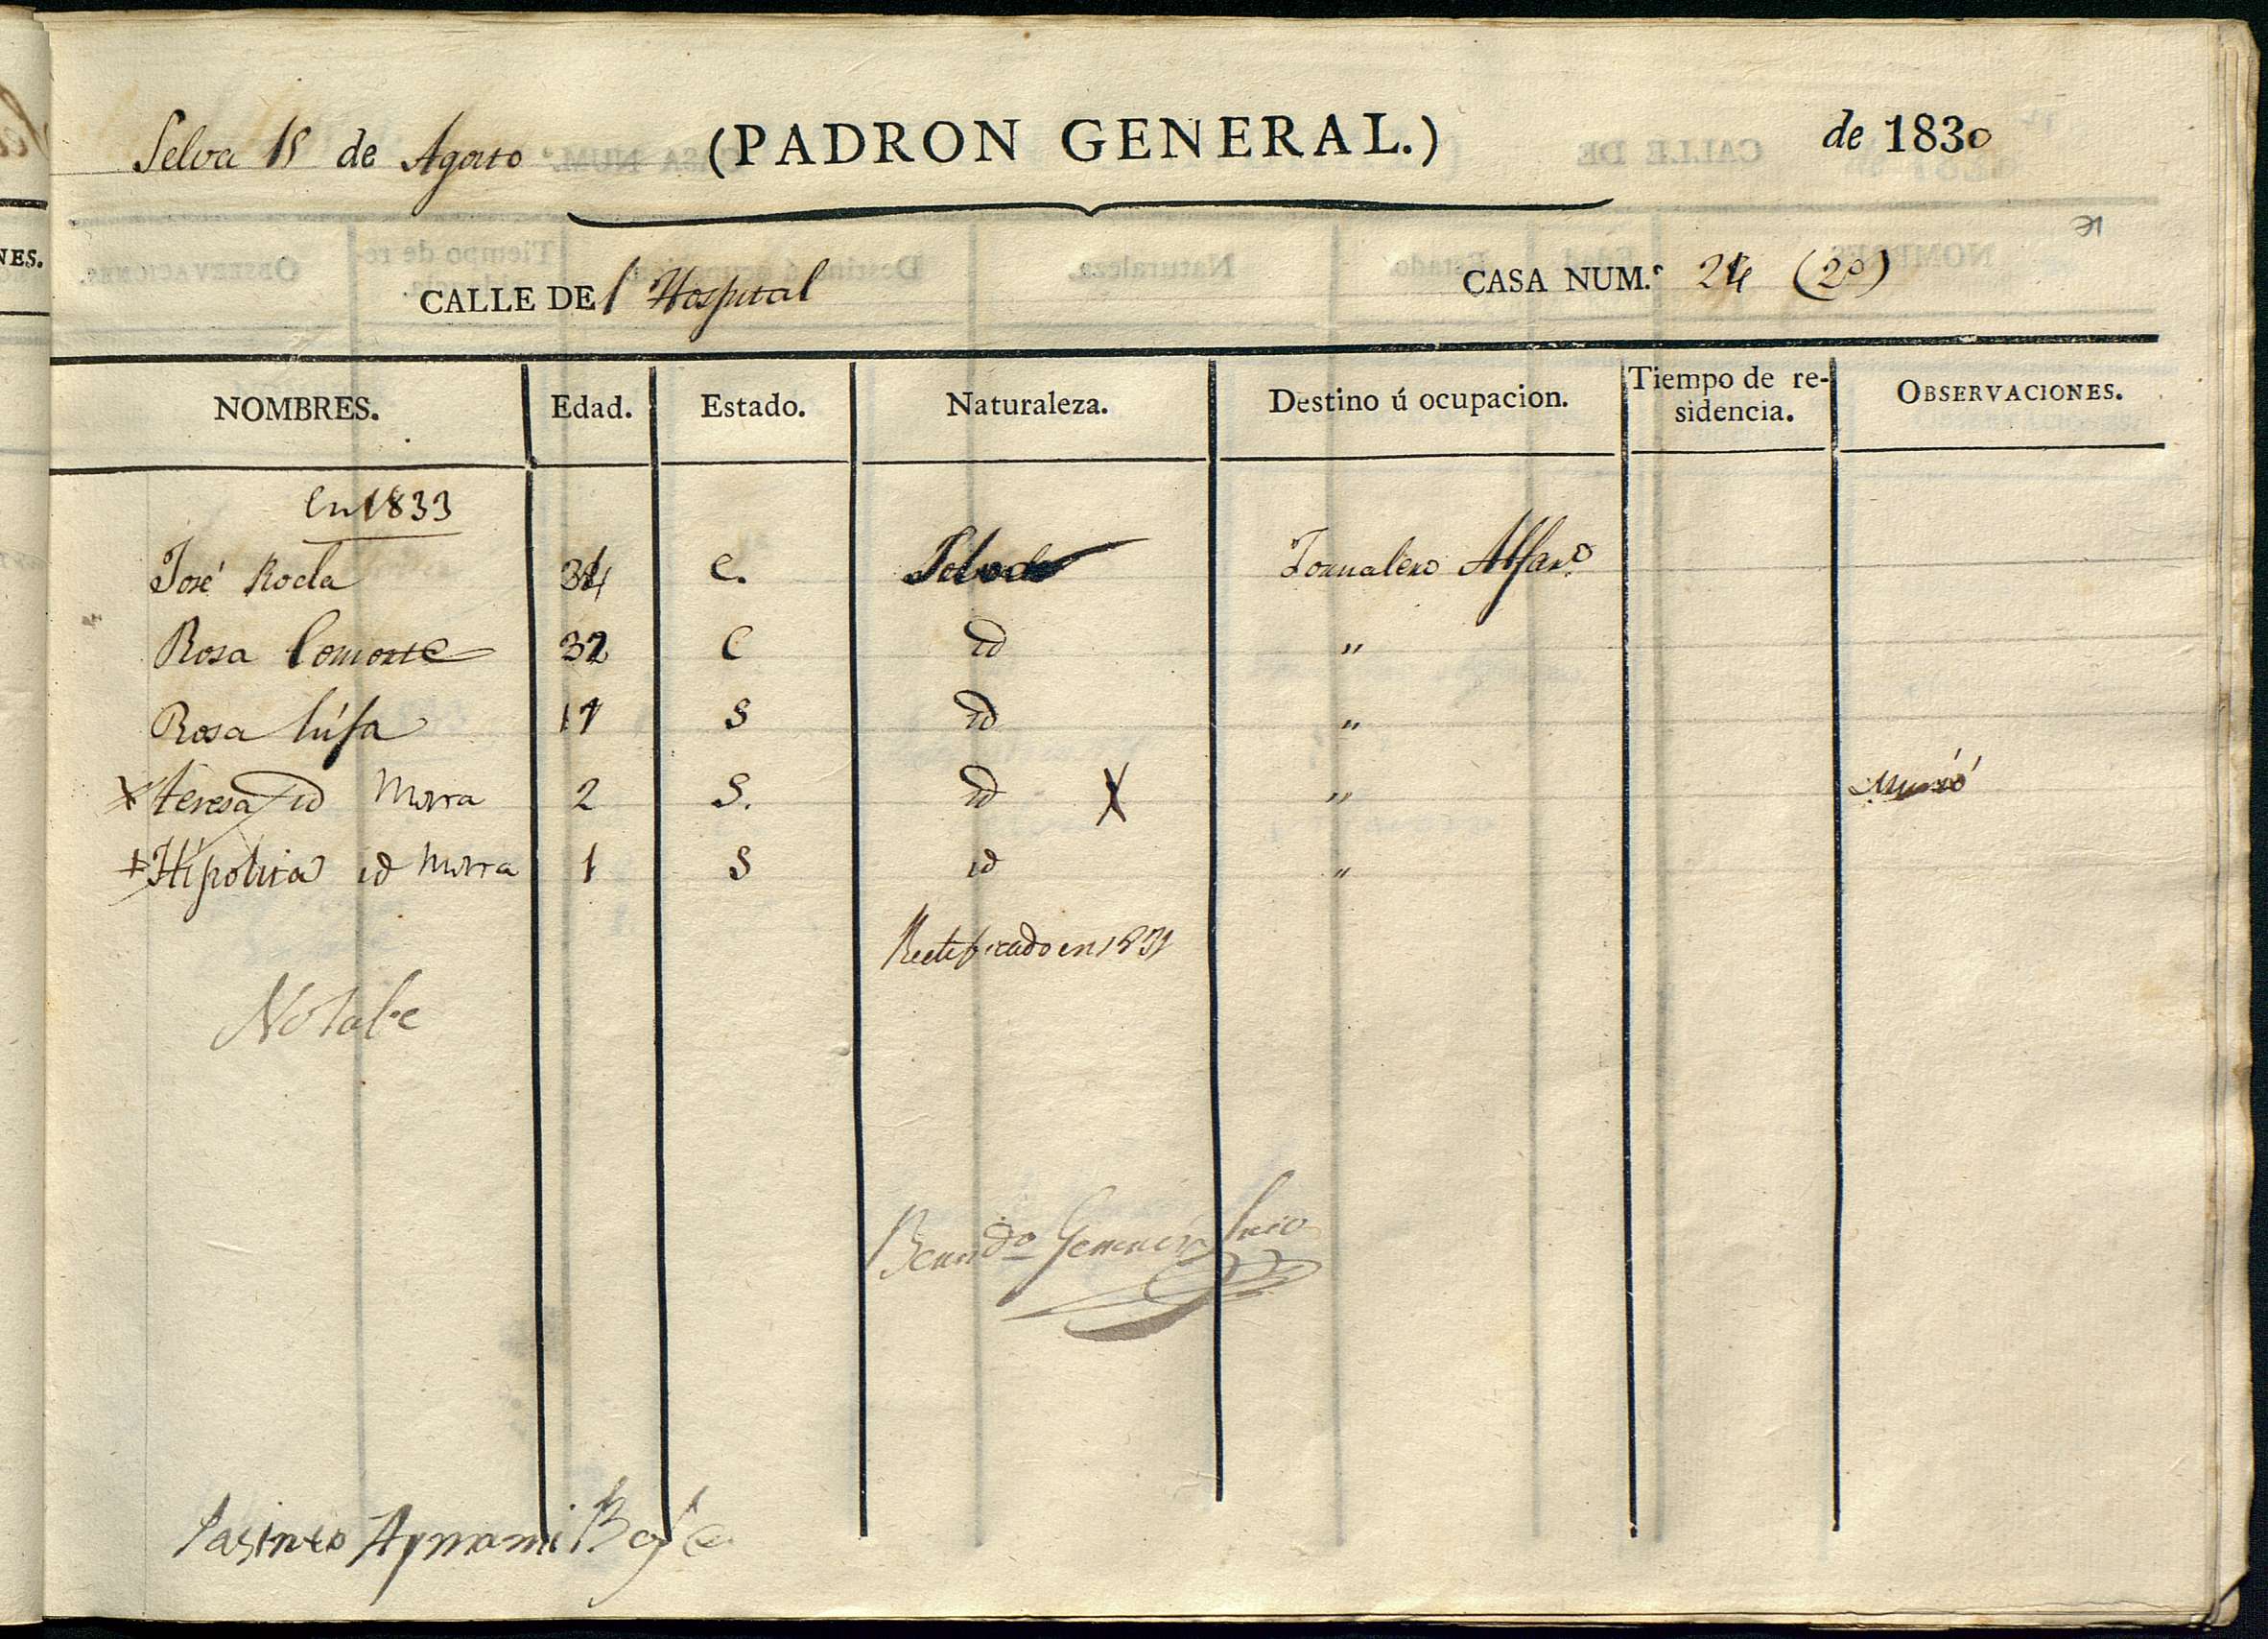 Selva 15 de Agosto (PADRON GENERAL.) de 1830
CALLE DEl Hospital CASA NUM.º 24 (2º)
NOMBRES. Edad. Estado. Naturaleza. Destino ú ocupacion. Tiempo de residencia. OBSERVACIONES.
En 1833
José Rocla 34 C. Jornalero Alfaro
Rosa 32 C id "
Rosa hija 17 S id "
x Teresa id Morra 2 S. id X " Murió
+ Hipolita id Morra 1 S id "
Rectificado en 1831
Notabe
Jasinto Aynami
NES.